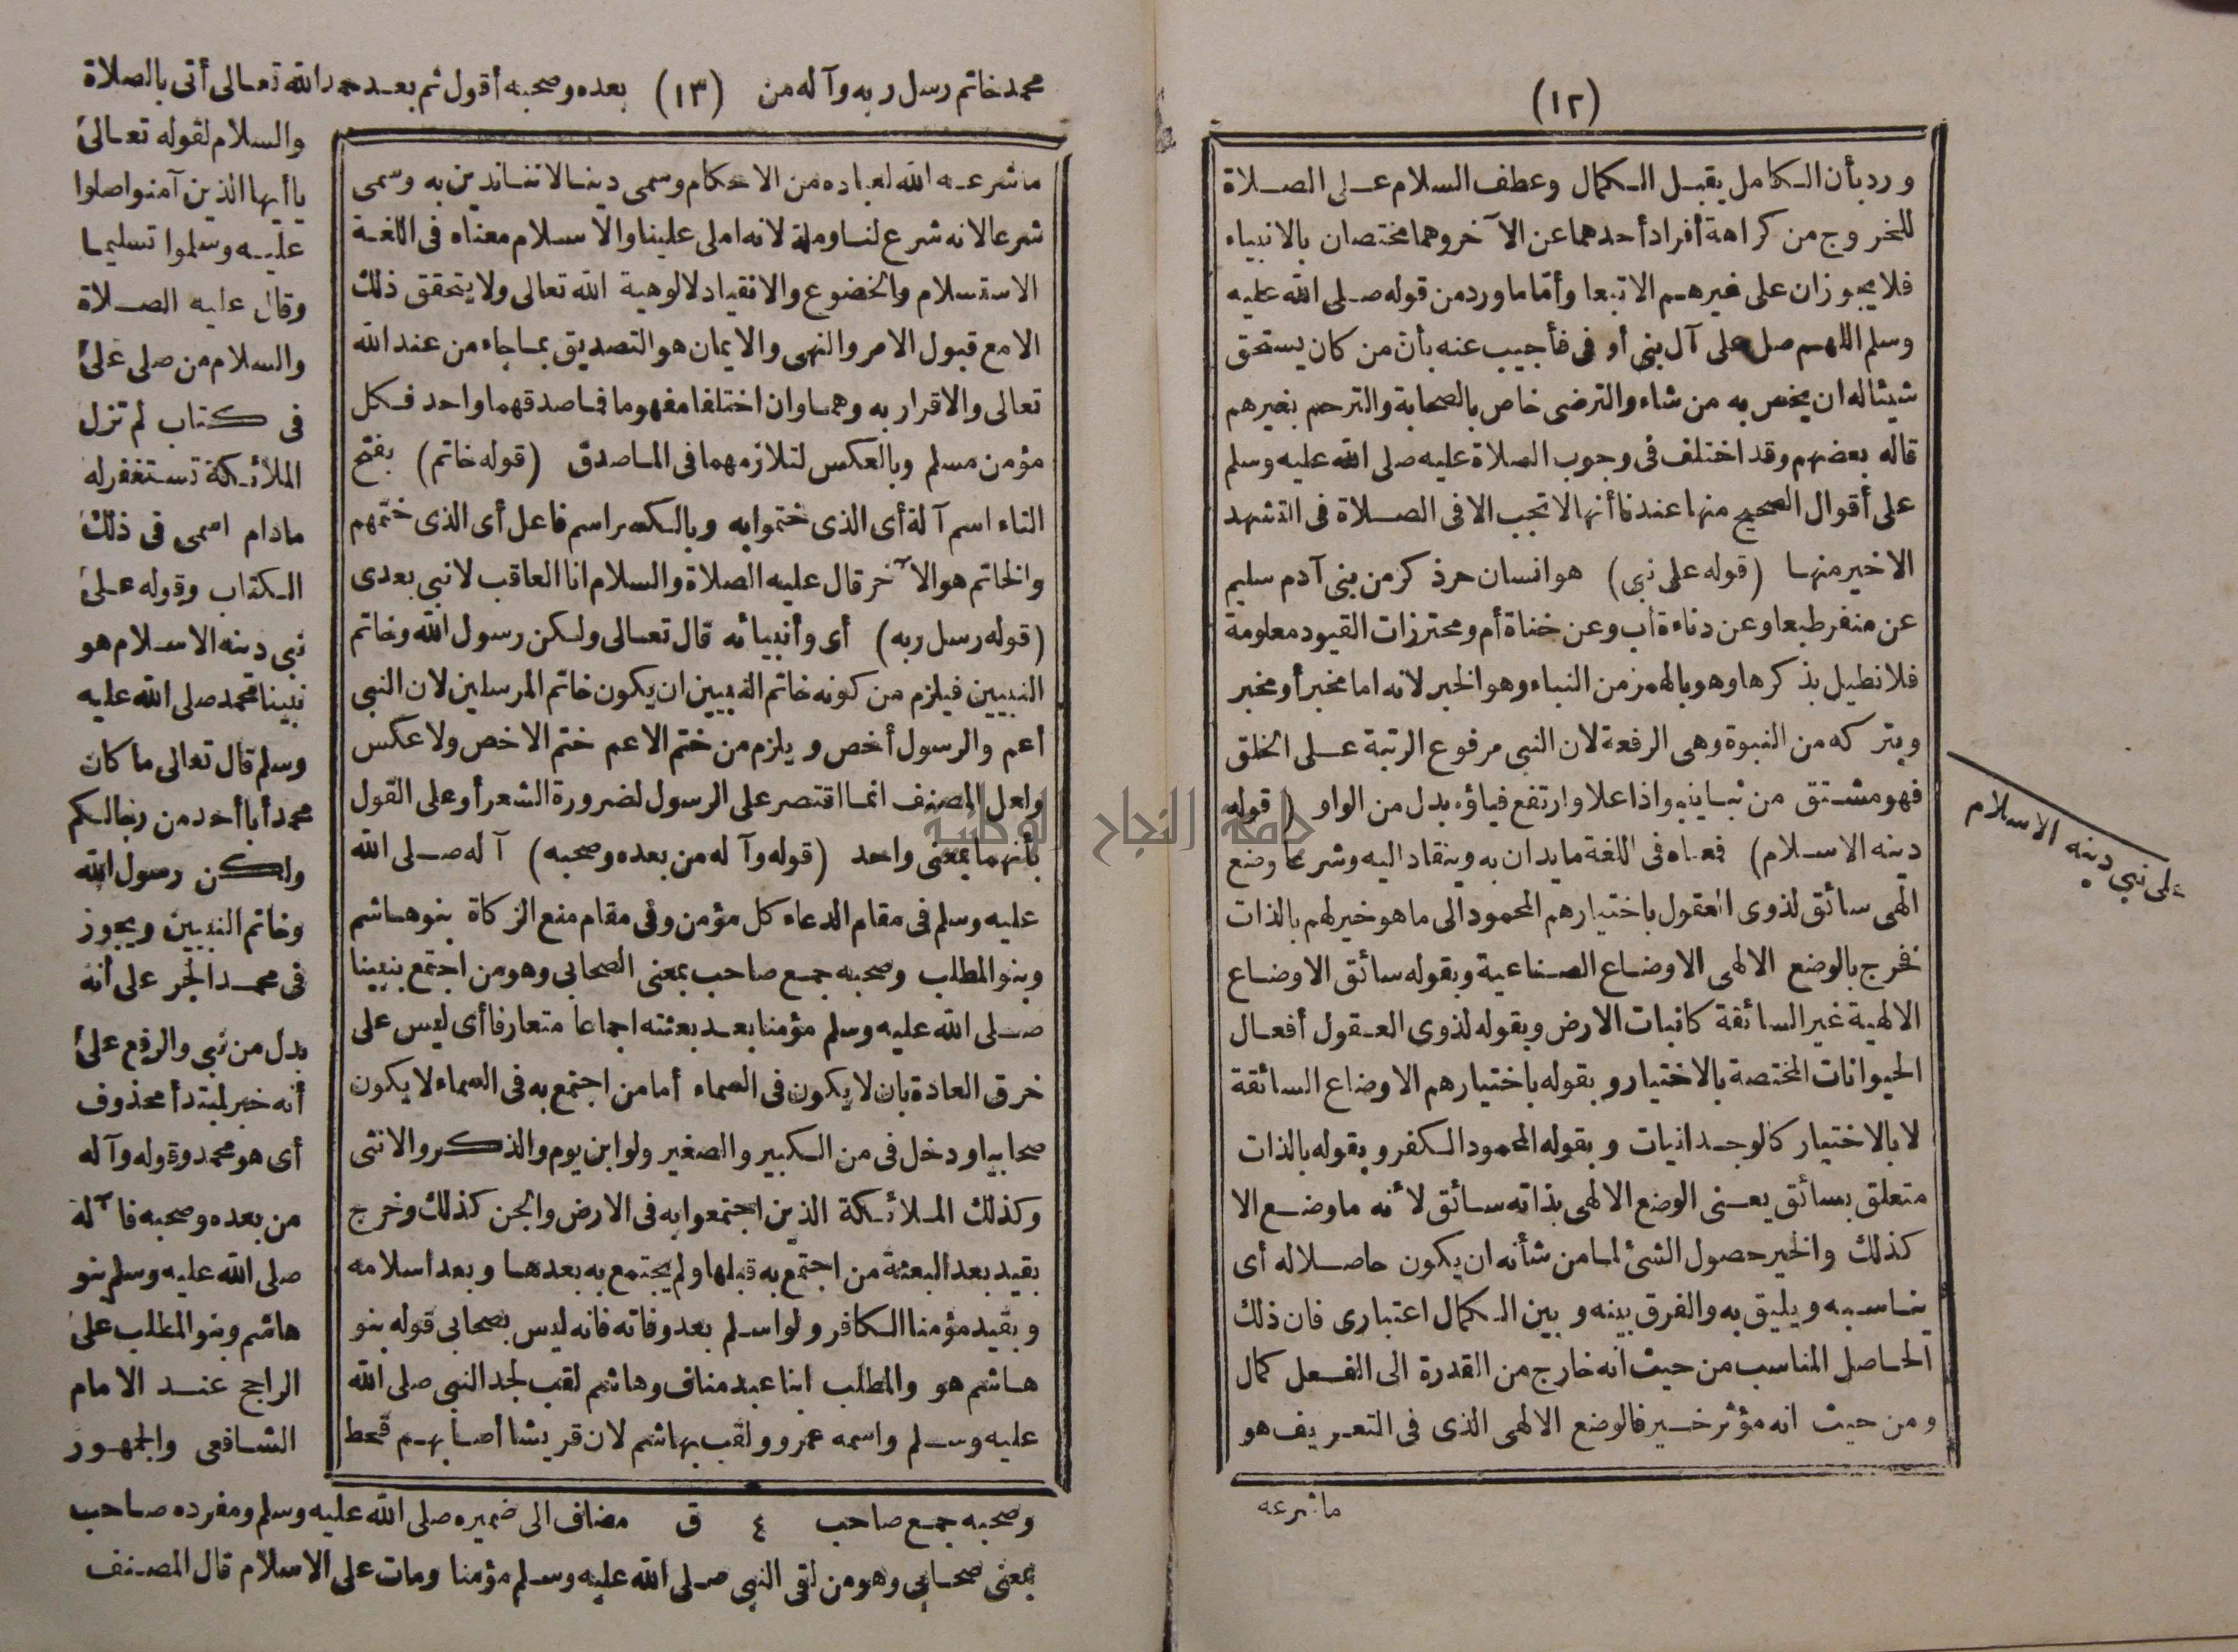 (١٢)
ورد بأن الكامل يقبل الكمال وعطف السلام على الصلاة
للخروج من كراهة أفراد أحدهما عن الآخر وهما مختصان بالانبياء
فلا يجوزان على غيرهم الا تبعا وأما ما ورد من قوله صلى الله عليه
وسلم اللهم صل على آل بنى أوفى فأجيب عنه بأن من كان يستحق
شيئا له ان يخص به من شاء والترضى خاص بالصحابة والترحم بغيرهم
قاله بعضهم وقد اختلف فى وجوب الصلاة عليه صلى الله عليه وسلم
على أقوال الصحيح منها عندنا أنها لا تجب الا فى الصلاة فى التشهد
الاخير منها (قوله على نبى) هو انسان حر ذكر من بنى آدم سليم
عن منفر طبعا وعن دناءة أب وعن خناة أم ومحترزات القيود معلومة
فلا نطيل بذكرها وهو بالهمز من النباء وهو الخبر لانه اما مخبر أو مخبر
وبتركه من النبوة وهى الرفعة لان النبى مرفوع الرتبة على الخلق
فهو مشتق من نبا ينبو اذا علا وارتفع فياؤه بدل من الواو (قوله
دينه الاسلام) فمعناه فى اللغة ما يدان به وينقاد اليه وشرعا وضع
الهى سائق لذوى العقول باختيارهم المحمود الى ما هو خير لهم بالذات
فخرج بالوضع الالهى الاوضاع الصناعية وبقوله سائق الاوضاع
الالهية غير السائقة كانبات الارض وبقوله لذوى العقول أفعال
الحيوانات المختصة بالاختيار وبقوله باختيارهم الاوضاع السائقة
لا بالاختيار كالوجدانيات وبقوله المحمود الكفر وبقوله بالذات
متعلق بسائق يعنى الوضع الالهى بذاته سائق لأنه ما وضع الا
كذلك والخير حصول الشئ لما من شأنه ان يكون حاصلا له أى
يناسبه ويليق به والفرق بينه وبين الكمال اعتبارى فان ذلك
الحاصل المناسب من حيث انه خارج من القدرة الى الفعل كمال
ومن حيث انه مؤثر خير فالوضع الالهى الذى فى التعريف هو
ما شرعه
على نبي دينه الاسلام
محمد خاتم رسل ربه وآله من (١٣) بعده وصحبه أقول ثم بعد حمد الله تعالى أتى بالصلاة
والسلام لقوله تعالى
يا أيها الذين آمنوا صلوا
عليه وسلموا تسليما
وقال عليه الصلاة
والسلام من صلى على
فى كتاب لم تزل
الملائكة تستغفر له
ما دام اسمى فى ذلك
الكتاب وقوله على
نبى دينه الاسلام هو
نبينا محمد صلى الله عليه
وسلم قال تعالى ما كان
محمد أبا أحد من رجالكم
ولكن رسول الله
وخاتم النبيين ويجوز
فى محمد الجر على أنه
بدل من نبى والرفع على
أنه خبر لمبتدأ محذوف
أى هو محمد وقوله وآله
من بعده وصحبه فآله
صلى الله عليه وسلم بنو
هاشم وبنو المطلب على
الراجح عند الامام
الشافعى والجمهور
ما شرعه الله لعباده من الاحكام وسمى دينا لاننا ندين به وسمى
شرعا لانه شرع لنا وملة لانه املى علينا والاسلام معناه فى اللغة
الاستسلام والخضوع والانقياد لالوهية الله تعالى ولا يتحقق ذلك
الا مع قبول الامر والنهى والايمان هو التصديق بما جاء من عند الله
تعالى والاقرار به وهما وان اختلفا مفهوما فماصدقهما واحد فكل
مؤمن مسلم وبالعكس لتلازمهما فى الماصدق (قوله خاتم) بفتح
التاء اسم آلة أى الذى ختموا به وبالكسر اسم فاعل أى الذى ختمهم
والخاتم هو الآخر قال عليه الصلاة والسلام انا العاقب لا نبى بعدى
(قوله رسل ربه) أى وأنبيائه قال تعالى ولكن رسول الله وخاتم
النبيين فيلزم من كونه خاتم النبيين ان يكون خاتم المرسلين لان النبى
أعم والرسول أخص ويلزم من ختم الاعم ختم الاخص ولا عكس
ولعل المصنف انما اقتصر على الرسول لضرورة الشعر أو على القول
بأنهما بمعنى واحد (قوله وآله من بعده وصحبه) آله صلى الله
عليه وسلم فى مقام الدعاء كل مؤمن وفى مقام منع الزكاة بنو هاشم
وبنو المطلب وصحبه جمع صاحب بمعنى الصحابى وهو من اجتمع بنبينا
صلى الله عليه وسلم مؤمنا بعد بعثته اجماعا متعارفا أى ليس على
خرق العادة بان لا يكون فى السماء أما من اجتمع به فى السماء لا يكون
صحابيا ودخل فى من الكبير والصغير ولو ابن يوم والذكر والانثى
وكذلك الملائكة الذين اجتمعوا به فى الارض والجن كذلك وخرج
بقيد بعد البعثة من اجتمع به قبلها ولم يجتمع به بعدها وبعد اسلامه
وبقيد مؤمنا الكافر ولو اسلم بعد وفاته فانه ليس بصحابى قوله بنو
هاشم هو والمطلب ابنا عبد مناف وهاشم لقب لجد النبى صلى الله
عليه وسلم واسمه عمرو ولقب بهاشم لان قريشا أصابهم قحط
وصحبه جمع صاحب ٤ ق مضاف الى ضميره صلى الله عليه وسلم ومفرده صاحب
بمعنى صحابى وهو من لقى النبى صلى الله عليه وسلم مؤمنا ومات على الاسلام قال المصنف
جامعة النجاح الوطنية